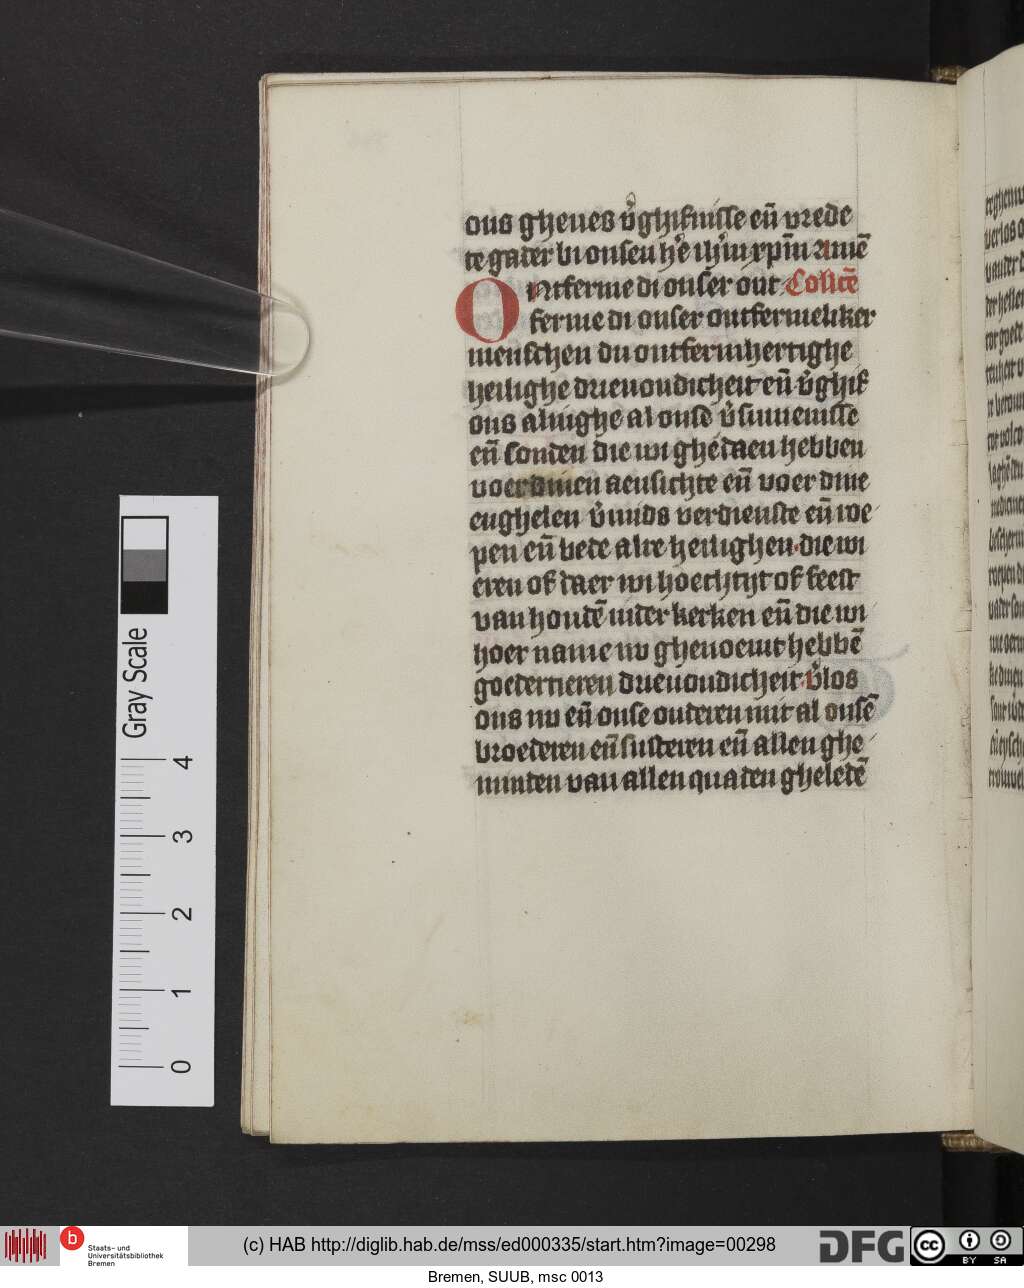 ons gheues v᷑ghifnisse eñ vrede
te gader bi onsen he᷑ ihm᷑ xpm̄ Amē
Ontferme di onser ont Collcē
ferme di onser ontfermeliker
menschen du ontfermhertighe
heilighe drieuondicheit eñ v᷑ghif
ons alnighe al onse v᷑sumenisse
eñ sonden die wi ghedaen hebben
voer dinen aensichte eñ voer dine
enghelen v᷑mids verdienste eñ roe
pen eñ bede alre heilighen die wi
eren of daer wi hoechtijt of feest
van hondē inder kerken eñ die wi
hoer name nv ghenoemt hebbē
goedertieren drieuondicheit v᷑los
ons nv eñ onse ouderen mit al onsē
broederen eñ susteren eñ allen ghe
minden van allen quaden gheledē
Gray Scale
4
3
2
1
0
b
Staats- und
Universitätsbibliothek
Bremen
(c) HAB http://diglib.hab.de/mss/ed000335/start.htm?image=00298
DFG
cc
BY SA
Bremen, SUUB, msc 0013